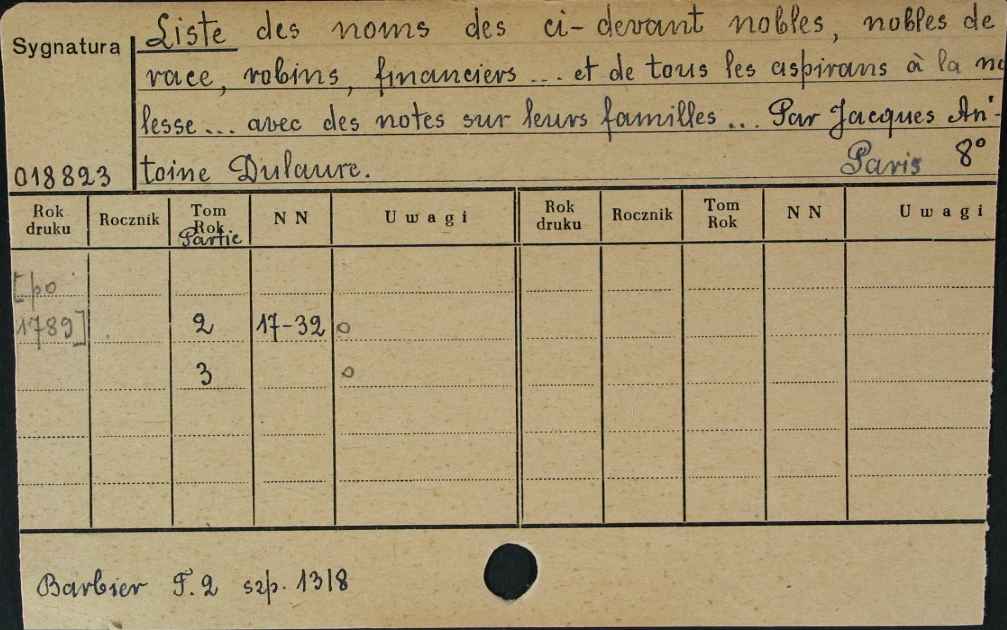 Sygnatura
Liste des noms des ci-devant nobles, nobles de
race, robins, financiers ... et de tous les aspirans à la no
lesse ... avec des notes sur leurs familles ... Par Jacques An-
018823
toine Dulaure. Paris 8°
Rok druku Rocznik Tom Rok Partie NN Uwagi Rok druku Rocznik Tom Rok NN Uwagi
[po
1789] 2 17-32 o
3 o
Barbier T.2 szp. 1318